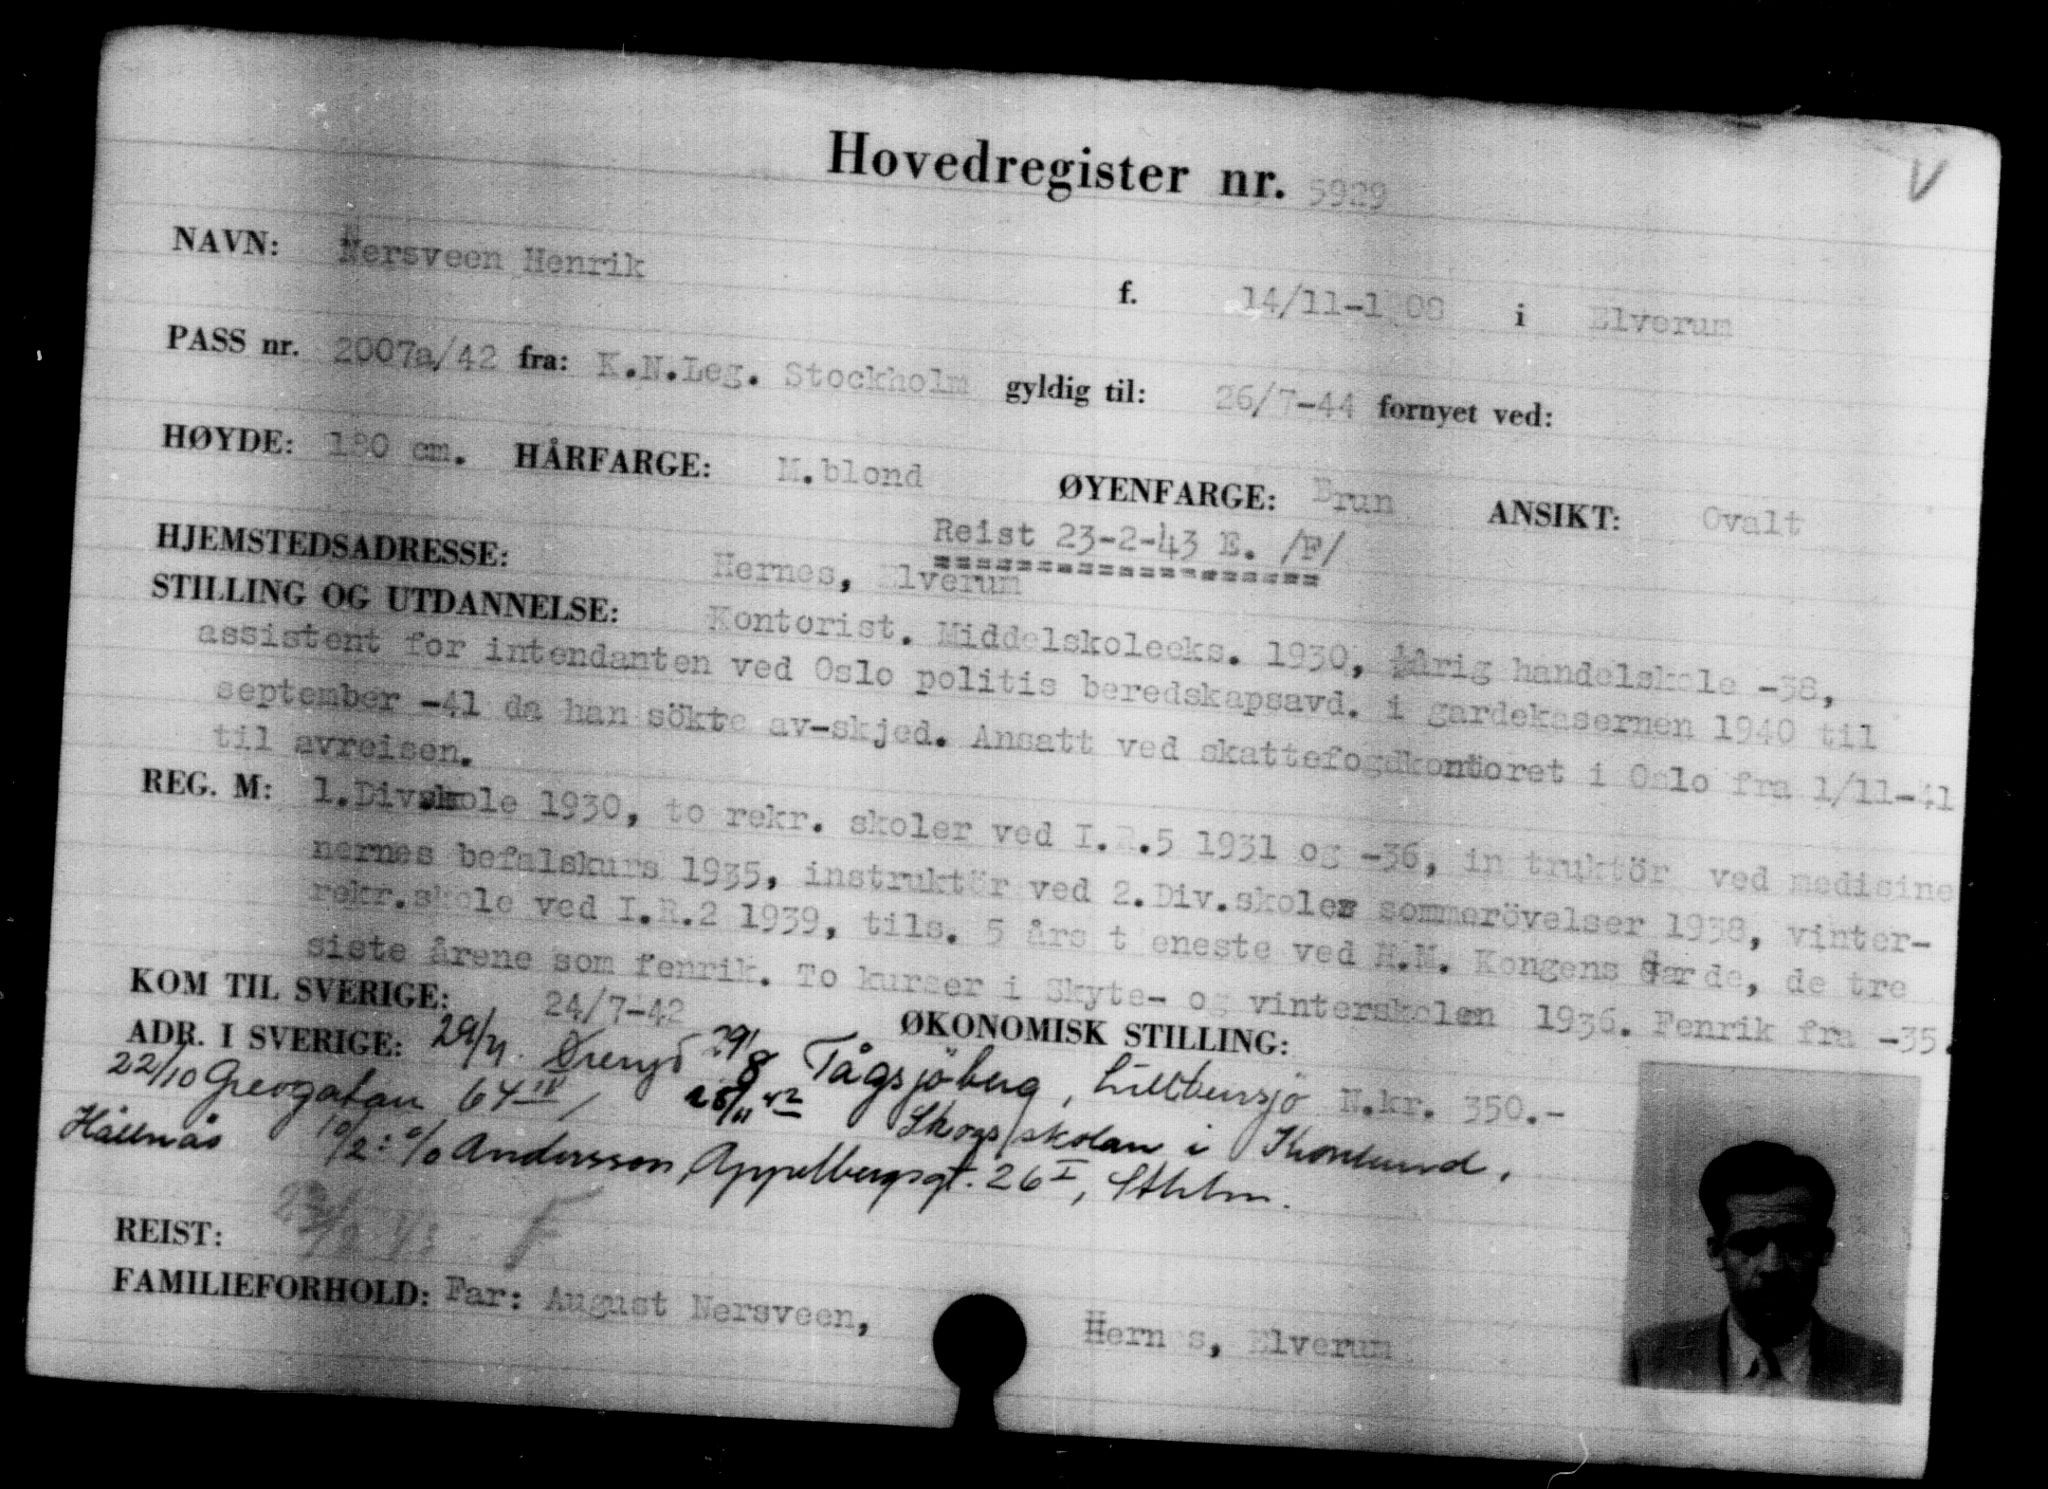 V
Hovedregister nr. 5929
NAVN: Nersveen Henrik f. 14/11-1908 i Elverum
PASS nr. 2007a/42 fra: K.N.Leg. Stockholm gyldig til: 26/7-44 fornyet ved:
HØYDE: 180 cm. HÅRFARGE: M.blond ØYENFARGE: Brun ANSIKT: Ovalt
Reist 23-2-43 E. /F/
HJEMSTEDSADRESSE: Hernes, Elverum
STILLING OG UTDANNELSE: Kontorist. Middelskoleeks. 1930, ½årig handelskole -38,
assistent for intendanten ved Oslo politis beredskapsavd. i gardekasernen 1940 til
september -41 da han sökte av-skjed. Ansatt ved skattefogdkontoret i Oslo fra 1/11-41
til avreisen.
REG. M: 1.Divskole 1930, to rekr. skoler ved I.R.5 1931 og -36, in truktör ved medisine
nernes befalskurs 1935, instruktör ved 2.Div.skoles sommerövelser 1938, vinter-
rekr.skole ved I.R.2 1939, tils. 5 års t eneste ved H.M. Kongens Garde, de tre
siste årene som fenrik. To kurser i Skyte- og vinterskolen 1936. Fenrik fra -35.
KOM TIL SVERIGE: 24/7-42 ØKONOMISK STILLING:
ADR. I SVERIGE: 29/7. 29/8 Tågsjöberg, N.kr. 350.-
22/10 Grevgatan 64 IV, 25/11 42 Skogsskolan i
Hällnäs 10/2: c/o Andersson, Appelbergsgt. 26 I, Sthlm.
REIST: 23/2 43 F
FAMILIEFORHOLD: Far: August Nersveen, Hern s, Elverum